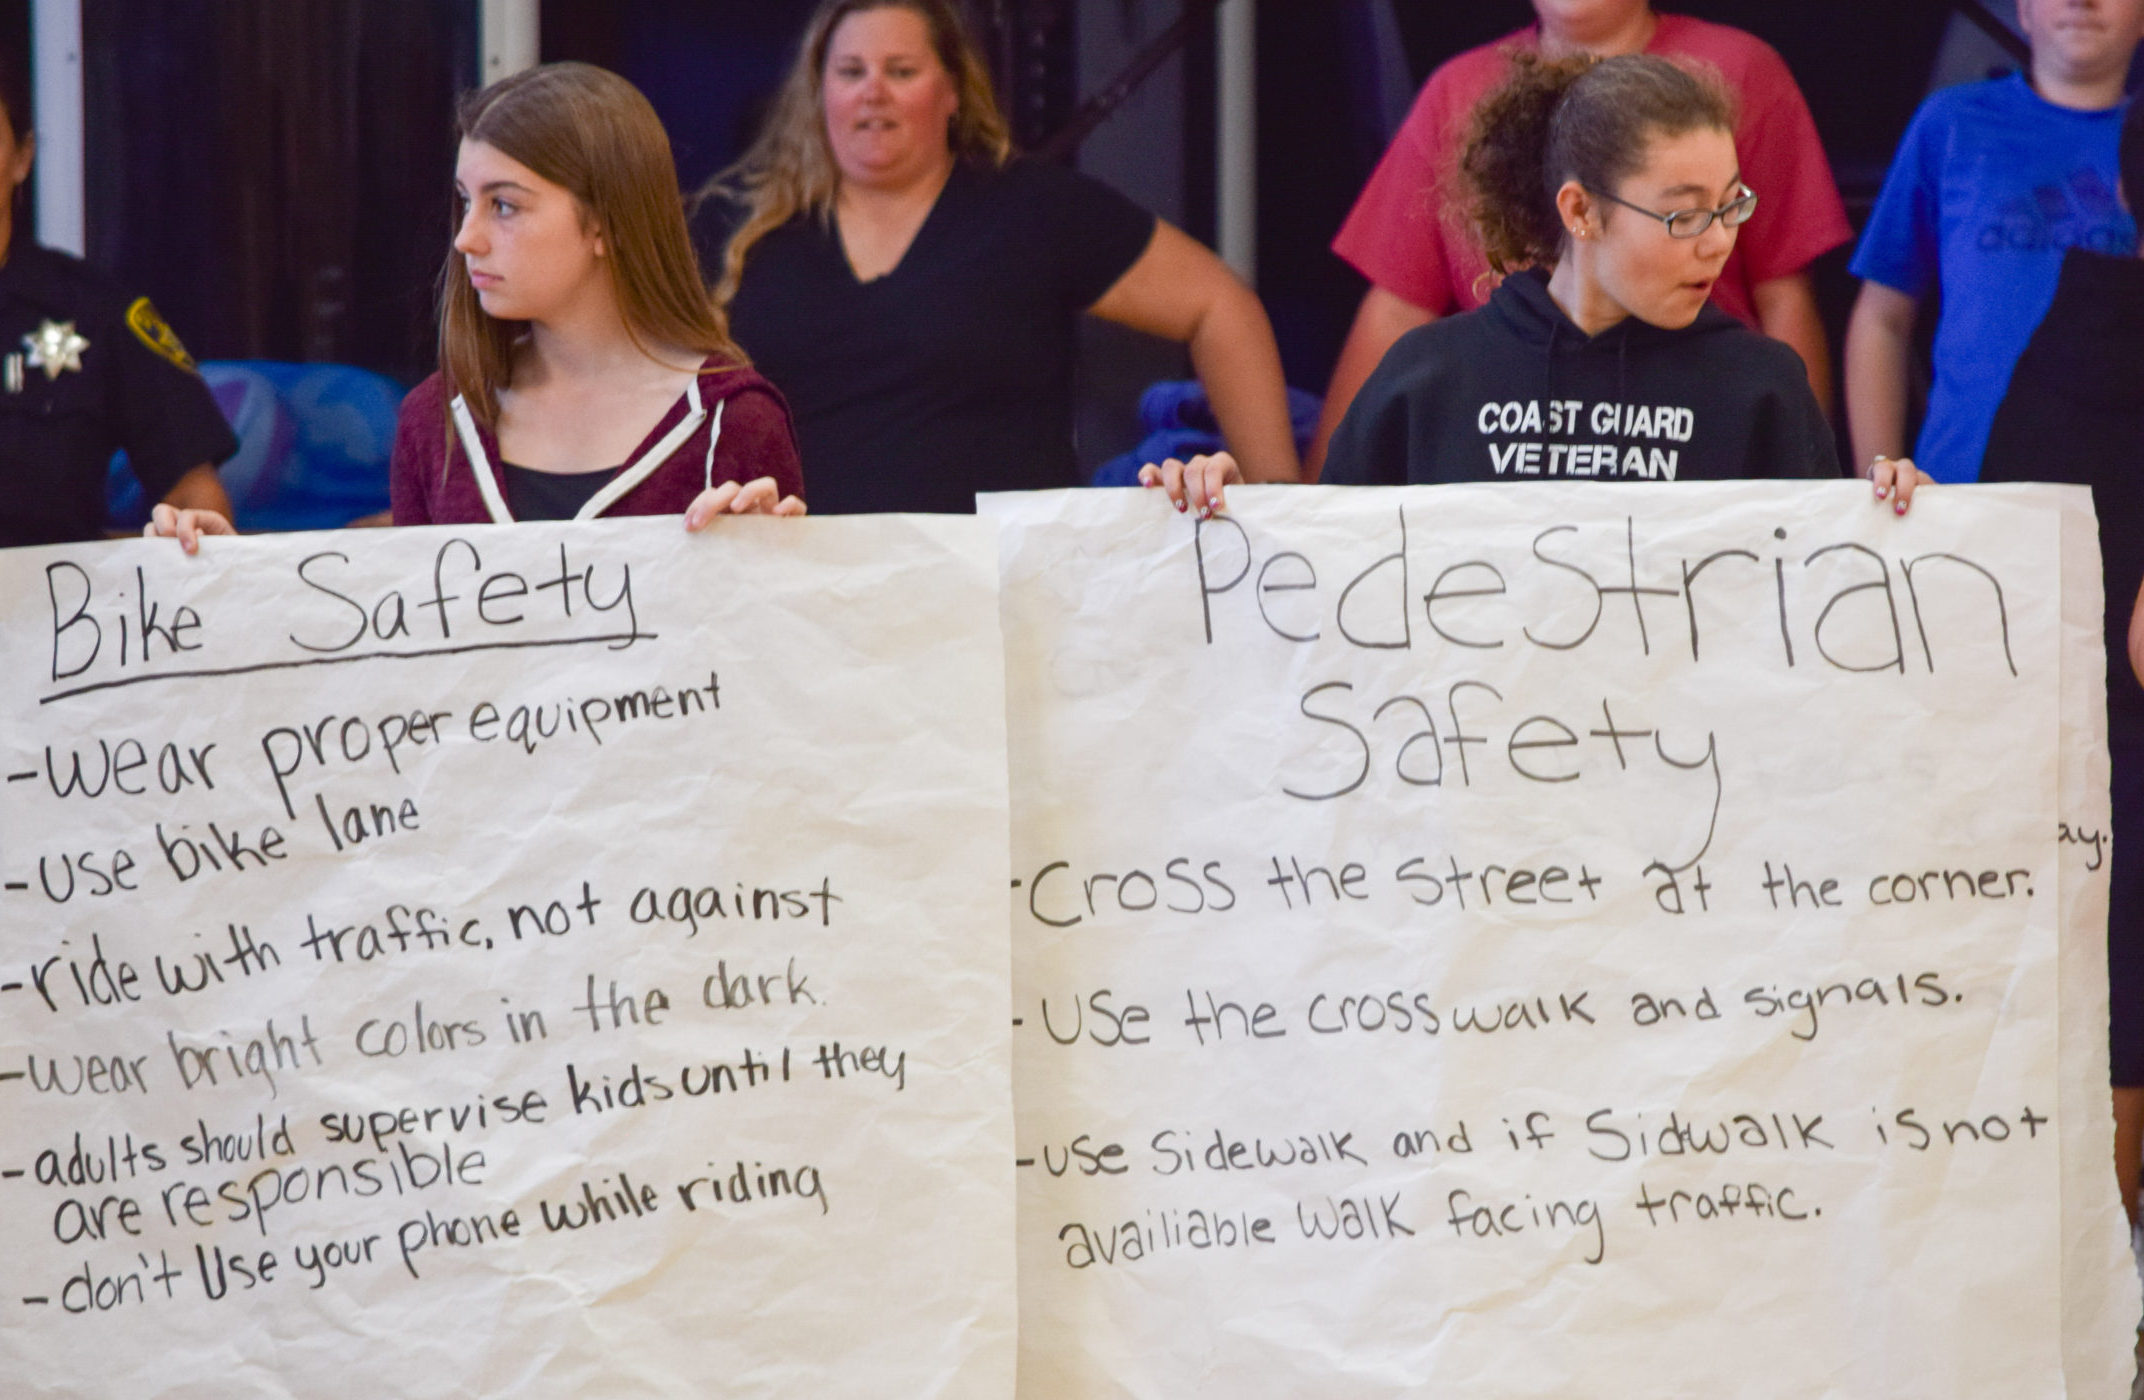 COAST GUARD
VETERAN
adidas
Bike Safety
-wear proper equipment
-use bike lane
-ride with traffic, not against
-wear bright colors in the dark.
-adults should supervise kids until they
are responsible
-don't Use your phone while riding
Pedestrian
Safety
-Cross the street at the corner.
-Use the crosswalk and signals.
-use Sidewalk and if Sidwalk is not
availiable walk facing traffic.
ay.